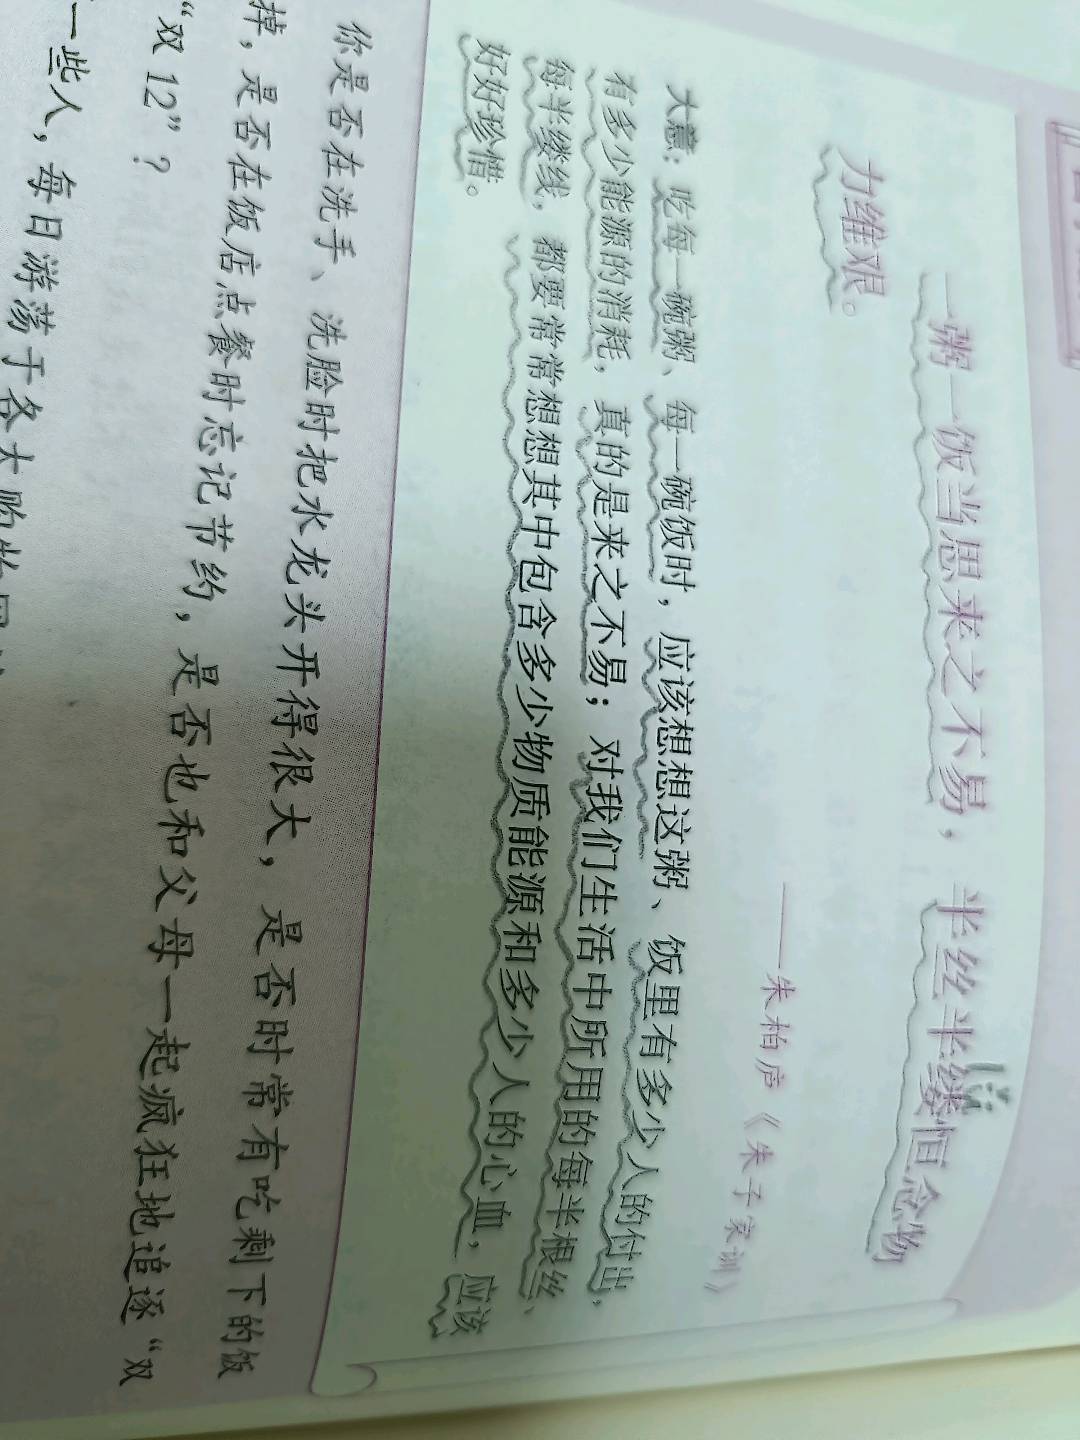 一粥一饭当思来之不易，半丝半缕恒念物
力维艰。
——朱柏庐《朱子家训》
大意：吃每一碗粥、每一碗饭时，应该想想这粥、饭里有多少人的付出，
有多少能源的消耗，真的是来之不易；对我们生活中所用的每半根丝、
每半缕线，都要常常想想其中包含多少物质能源和多少人的心血，应该
好好珍惜。
你是否在洗手、洗脸时把水龙头开得很大，是否时常有吃剩下的饭
掉，是否在饭店点餐时忘记节约，是否也和父母一起疯狂地追逐“双
“双12”？
一些人，每日游荡于各大购物网